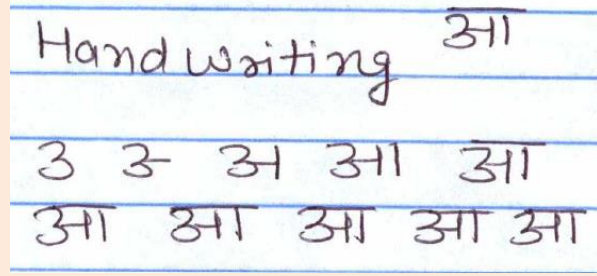 Handwriting आ
उ उ- अ आ आ
आ आ आ आ आ